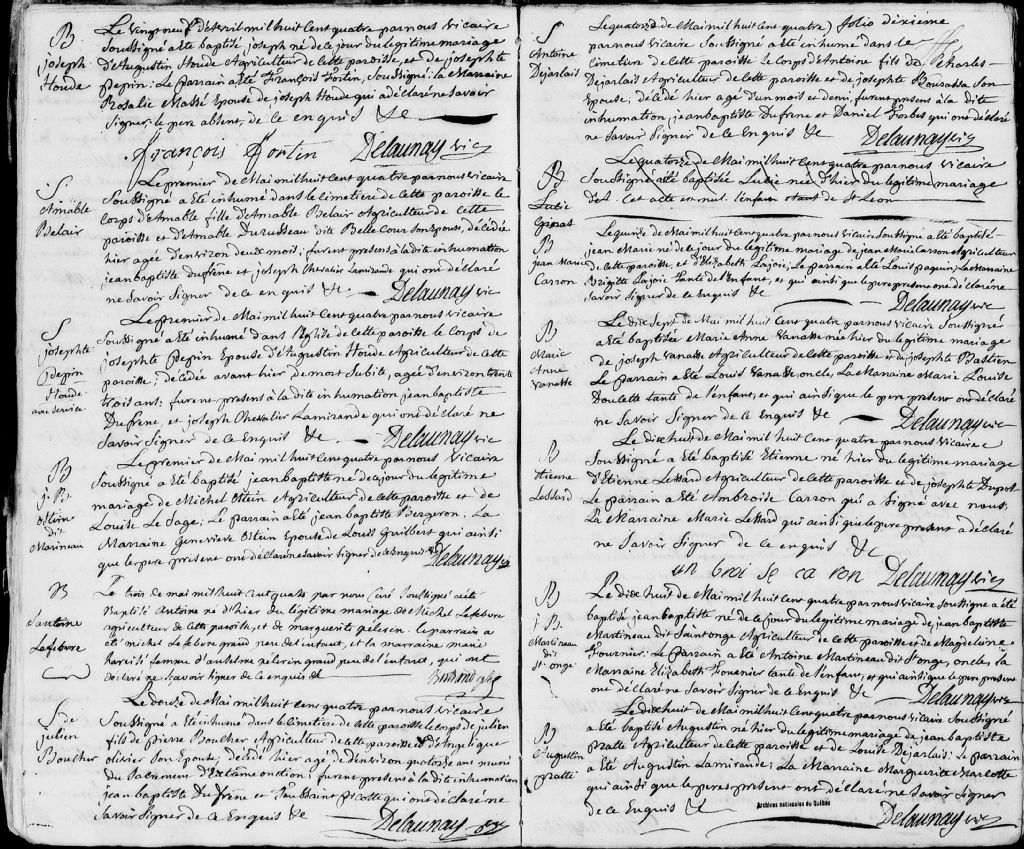 B
joseph
Houde
Le vingtneuf d'Avril mil huit cent quatre par nous vicaire
Soussigné a été baptisé joseph né de ce jour du legitime mariage
d'Augustin Houde Agriculteur de cette paroisse, et de josephte
Pepin: Le parrain a été François Fortin, Soussigné: la Marraine
Rosalie Massé Epouse de joseph Houde qui a déclaré ne Savoir
Signer, le pere absent, de ce enquis &c
françois fortin Delaunay vic
S
Amable
Belair
Le premier de Mai mil huit cent quatre par nous vicaire
Soussigné a été inhumé dans le Cimetiere de cette paroisse le
Corps d'Amable fille d'Amable Belair Agriculteur de cette
paroisse et d'Amable Durusseau dite Bellecour son Epouse, décédée
hier agée d'environ deux mois; furent presens à la dite inhumation
jean baptiste dufrene et joseph Chevalier Lamirande qui ont déclaré
ne Savoir Signer de ce enquis &c. Delaunay vic
S
josephte
Pepin
Houde
Le premier de Mai mil huit cent quatre par nous vicaire
Soussigné a été inhumé dans l'Eglise de cette paroisse le Corps de
josephte Pepin Epouse d'Augustin Houde Agriculteur de cette
paroisse; décédée avant hier de mort Subite, agée d'environ trente
trois ans; furent presens à la dite inhumation jean baptiste
Dufrene, et joseph Chevalier Lamirande qui ont déclaré ne
Savoir Signer de ce Enquis &c. Delaunay vic
B
j. B.
Ostein
dit
Marineau
Le premier de Mai mil huit cent quatre par nous Vicaire
Soussigné a été baptisé jean baptiste né de ce jour du légitime
mariage de Michel Ostein Agriculteur de cette paroisse et de
Louise Le Sage; Le parrain a été jean baptiste Bergeron. La
Marraine Genevieve Ostein Epouse de Louis Guilbert qui ainsi
que le pere présent ont déclaré ne Savoir Signer de ce Enquis Delaunay vic
B
antoine
Lefebvre
Le trois de mai mil huit cent quatre par nous Curé Soussigné a été
Baptisé Antoine né d'hier du légitime mariage de Michel Lefebvre
agriculteur de cette paroisse, et de marguerite pelerin. le parrain a
été michel Lefebvre grand pere de l'enfant, et la marraine marie
femme d'anselme pelerin grand pere de l'enfant, qui ont
déclaré ne Savoir Signer de ce enquis &c
S de
julien
Boucher
Le douze de Mai mil huit cent quatre par nous vicaire
Soussigné a été inhumé dans le Cimetiere de cette paroisse le corps de julien
fils de pierre Boucher Agriculteur de cette paroisse et d'Angelique
olivier Son Epouse; décédé hier agé d'environ quatorze ans muni
du Sacrement d'Extrême onction; furent presens à la dite inhumation
jean baptiste Dufrêne et Toussaint picotte qui ont déclaré ne
Savoir Signer de ce Enquis &c Delaunay vic
folio dixieme
S
Antoine
Dejarlais
Le quatorze de Mai mil huit Cent quatre
par nous vicaire Soussigné a été inhumé dans le
Cimetiere de cette paroisse le Corps d'Antoine fils de Charles
Dejarlais Agriculteur de cette paroisse et de josephte Son
Epouse; décédé hier agé d'un mois et demi; furent presens à la dite
inhumation jean baptiste Dufrene et Daniel Forbes qui ont déclaré
ne Savoir Signer de ce Enquis &c Delaunay vic
B
Lucie
Le quatorze de Mai mil huit Cent quatre par nous vicaire
Soussigné a été baptisée Lucie née d'hier du légitime mariage
de A. Cet acte est nul. l'enfant étant de St Leon
B
jean Marie
Carron
Le quinze de Mai mil huit Cent quatre par nous vicaire Soussigné a été baptisé
jean Marie né de ce jour du légitime mariage de jean Marie Carron Agriculteur
de cette paroisse, et d'Elizabeth Lajoie, Le parrain a été Louis paquin; La Marraine
Brigitte Lajoie Tante de l'Enfant, et qui ainsi que le pere present ont déclaré ne
Savoir Signer de ce Enquis &c Delaunay vic
B
Marie
Anne
Vanasse
Le dix Sept de Mai mil huit Cent quatre par nous vicaire Soussigné
a été baptisée Marie Anne Vanasse née hier du légitime mariage
de joseph Vanasse Agriculteur de cette paroisse et de josephte Bastien
Le parrain a été Louis Vanasse oncle, La Marraine Marie Louise
Doulette tante de l'enfant, et qui ainsi que le pere present ont déclaré
ne Savoir Signer de ce Enquis &c Delaunay vic
B
Etienne
Lessard
Le dix huit de Mai mil huit Cent quatre par nous vicaire
Soussigné a été baptisé Etienne né hier du legitime mariage
d'Etienne Lessard Agriculteur de cette paroisse et de josephte Dupot
Le parrain a été Ambroise Carron qui a Signé avec nous.
La Marraine Marie Lessard qui ainsi que le pere present a déclaré
ne Savoir Signer de ce enquis &c
an broi se ca ron Delaunay vic
B
j. B.
Martineau
dit
St onge
Le dix huit de Mai mil huit Cent quatre par nous vicaire Soussigné a été
baptisé jean baptiste né de ce jour du legitime mariage de jean baptiste
Martineau dit Saint onge Agriculteur de cette paroisse et de Magdeleine
Fournier. Le parrain a été Antoine Martineau dit St onge, oncle, la
Marraine Elizabeth Fournier tante de l'enfant, et qui ainsi que le pere present
ont déclaré ne Savoir Signer de ce Enquis &c Delaunay vic
B
Augustin
pratte
Le dix huit de Mai mil huit Cent quatre par nous vicaire Soussigné
a été baptisé Augustin né hier du legitime mariage de jean baptiste
pratte Agriculteur de cette paroisse et de Louise Dejarlais: Le parrain
a été Augustin Lamirande; La Marraine Marguerite Marcotte
qui ainsi que le pere present ont déclaré ne Savoir Signer
de ce Enquis &c Delaunay vic
Archives nationales du Québec